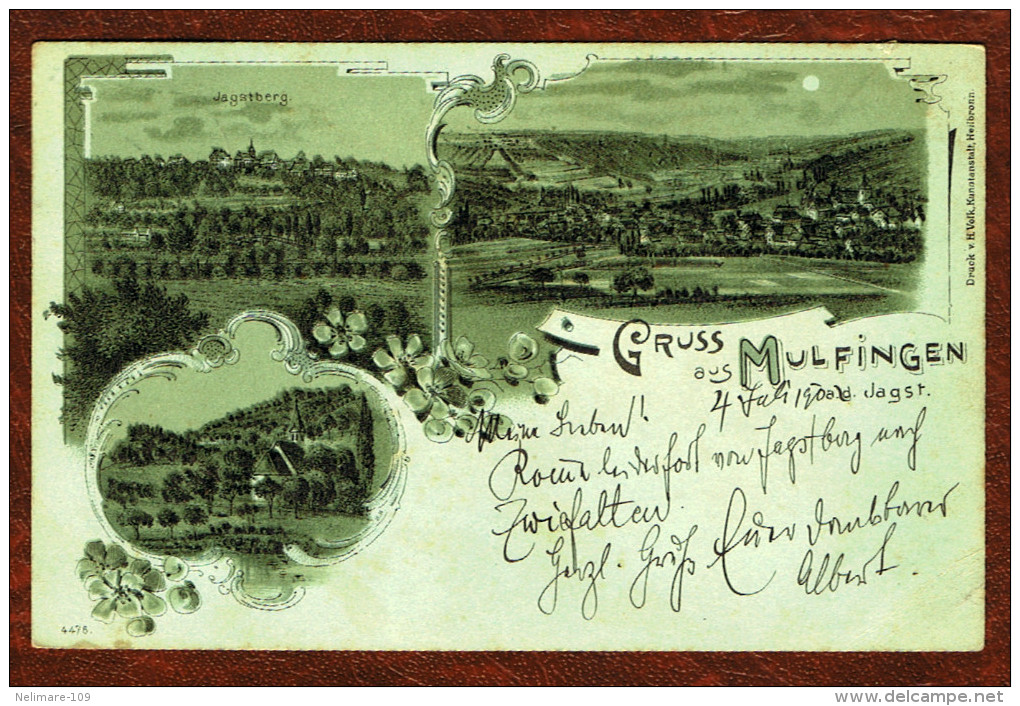 Jagstberg.
Druck v. H. Volk, Kunstanstalt, Heilbronn.
GRUSS
aus MULFINGEN
a.d. Jagst.
4 Juli 190
Meine Lieben!
Komme leider fort von Jagstberg nach
Zwiefalten.
Herzl. Gruß Euer dankbarer
Albert.
4478.
Nelimare-109
http://www.delcampe.net